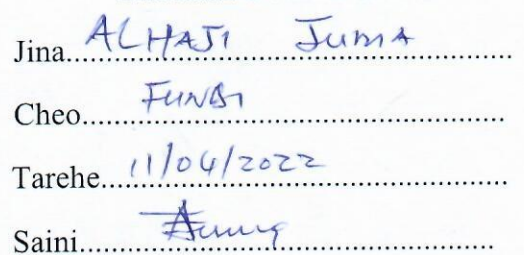 Jina ALHAJI JUMA
Cheo FUNDI
Tarehe 11/04/2022
Saini